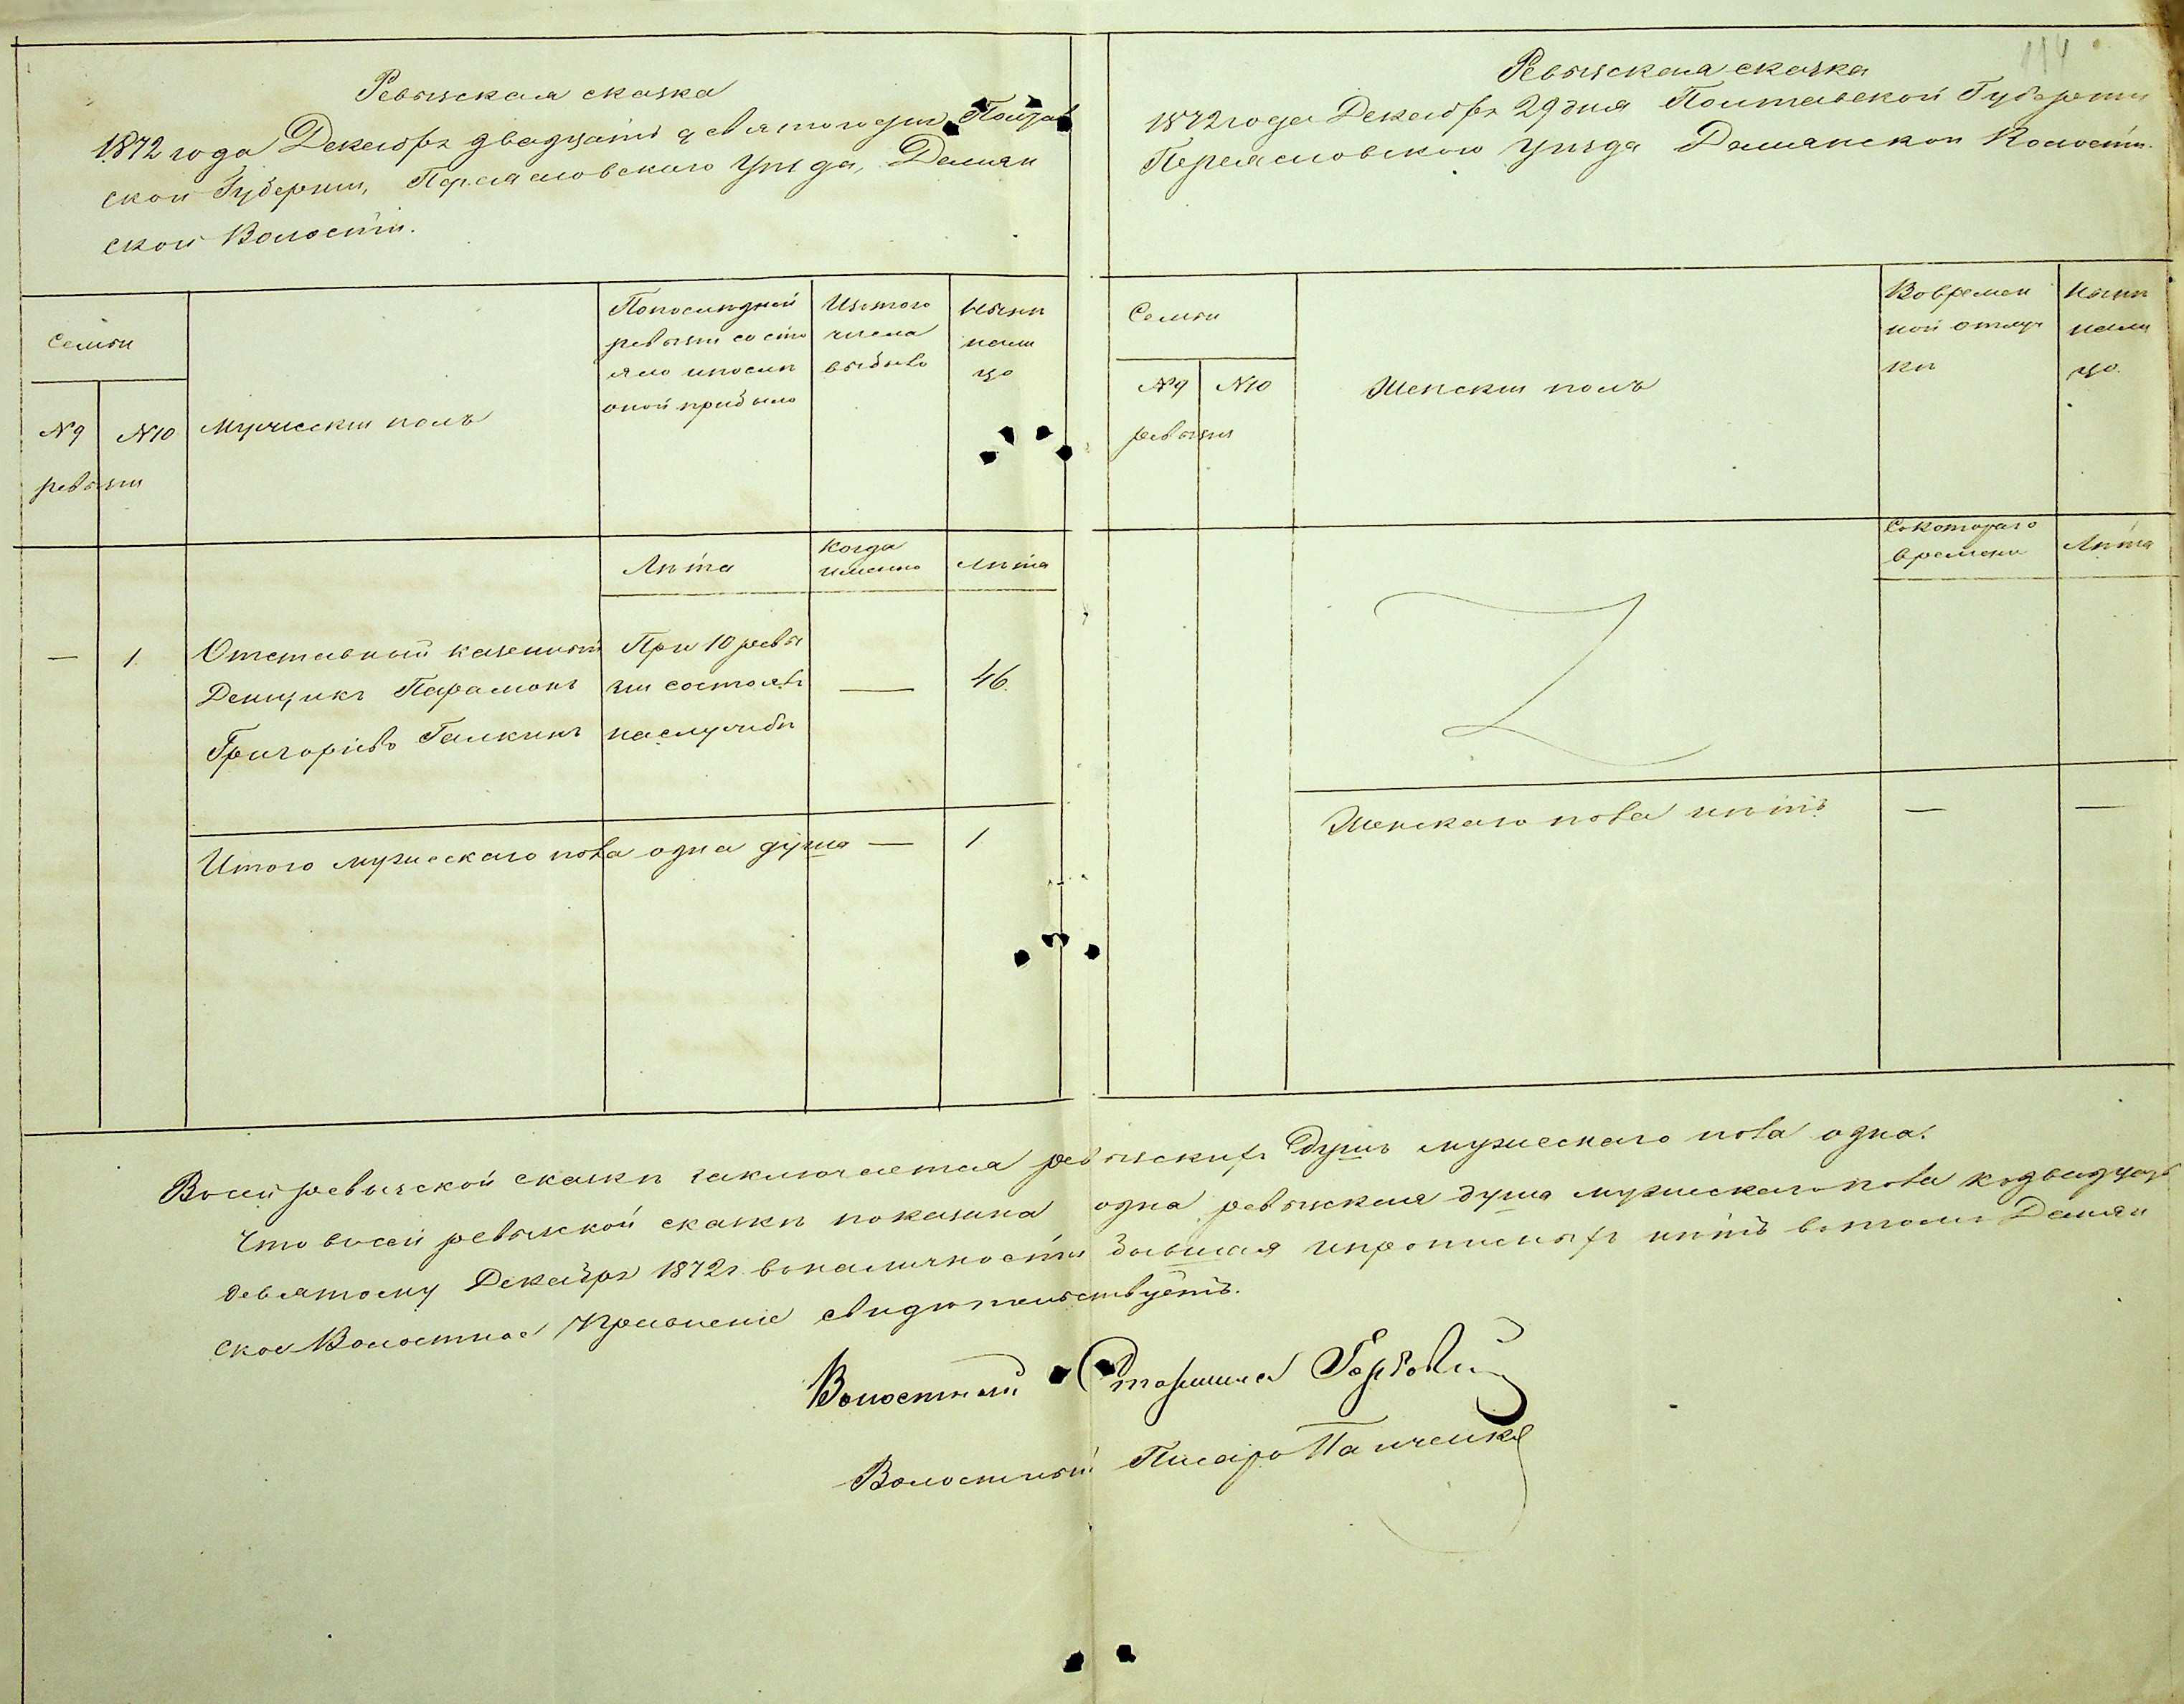 Ревызская сказка
1872 года Декабря двадцать девятого дня Полтав
ской Губернии, Переяславского Уезда, Демян
ской Волости.
Семьи
№ 9
№ 10
ревызи
Мужеский полъ
Попоследней
ревызии состо
яло ипосли
оной прибыло
Изтого
числа
выбыло
Нынѣ
нали
цо
Лѣта
Когда
именно
Лѣта
—
1
Отставный казенный
Денщикъ Парамонъ
Григоріевъ Галкинъ
При 10 ревы
зии состоялъ
наслужбѣ
—
46.
Итого мужескаго пола одна душа — 1
114
Ревызская сказка
1872 года Декабря 29 дня Полтавской Губернии
Переяславского Уезда Демянской Волости.
Семьи
№ 9
№ 10
ревызия
Женский полъ
Вовремен
ной отлуч
ки
Нынѣ
нали
цо.
Скотораго
времени
Лѣта
Женскаго пола нѣтъ — —
Восей ревызской сказкѣ заключается ревызскихъ Душъ мужескаго пола одна.
Что восей ревызской сказкѣ показана одна ревызская душа мужескаго пола кодвадцать
девятому Декабря 1872 г. воналичности бывшая ипрописныхъ нѣтъ втомъ Демян
ское Волостное Правленіе свидѣтельствуетъ.
Волостный Старшина
Волостный Писарь Панченко